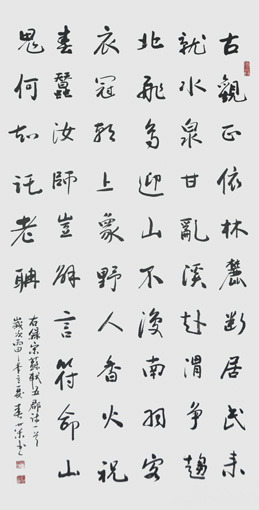 古觀正依林麓断居民来
就水泉甘亂溪赴渭争趨
北飛鳥迎山不復南羽客
衣冠朝上象野人香火祝
春蠶汝師豈解言符命山
鬼何知託老聃
右録宋蘇軾五郡詩一首
歲次丙申年之夏